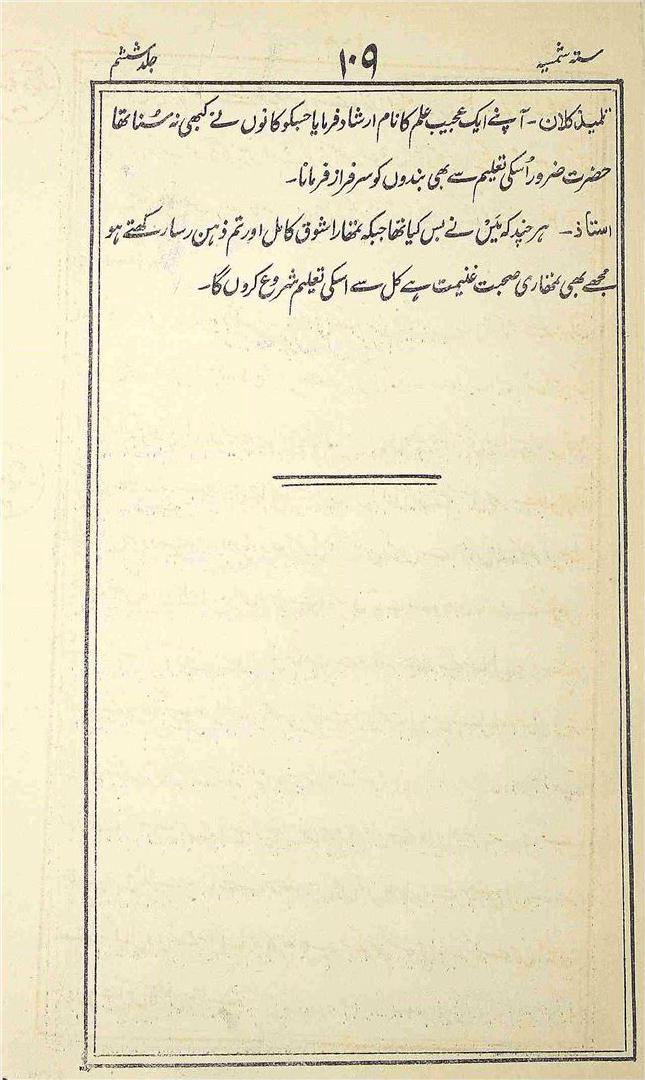 ستہ شمسیہ
۱۰۹
جلد ششم
تلمیذ کلان۔ آپنے ایک عجیب علم کا نام ارشاد فرمایا جسکو کانوں نے کبھی نہ سُنا تھا
حضرت ضرور اُسکی تعلیم سے بھی بندوں کو سرفراز فرمانا۔
استاذ۔ ہر چند کہ مَیں نے بس کیا تھا جبکہ تمھارا شوق کامل اور تم ذہن رسا رکھتے ہو
مجھے بھی تمھاری صحبت غنیمت ہے کل سے اسکی تعلیم شروع کروں گا۔